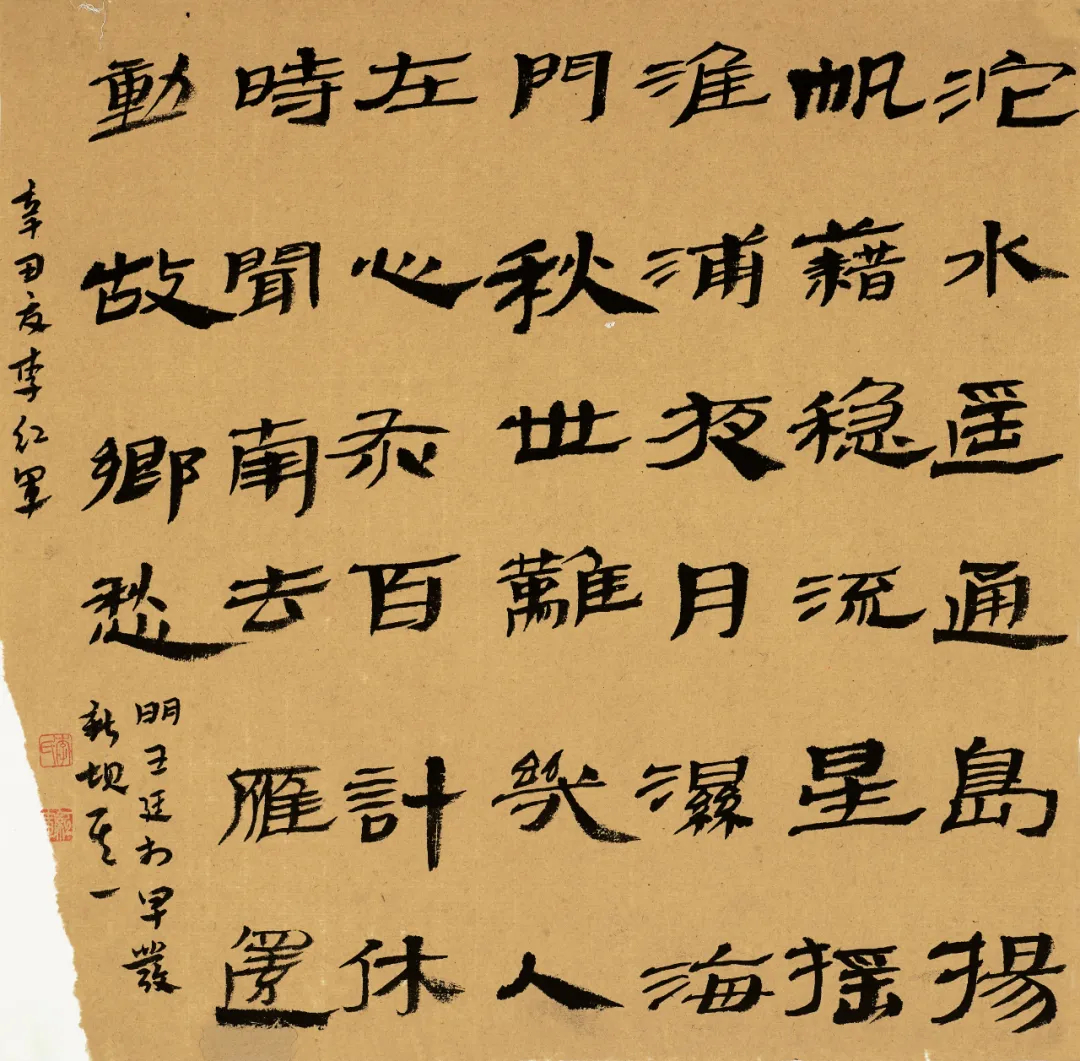 沱水遥通島揚
帆藉稳流星摇
淮浦夜月濕海
門秋世難幾人
左心灰百計休
時聞南去雁還
動故鄉愁
明王廷相早發
新坝其一
辛丑夏李红军